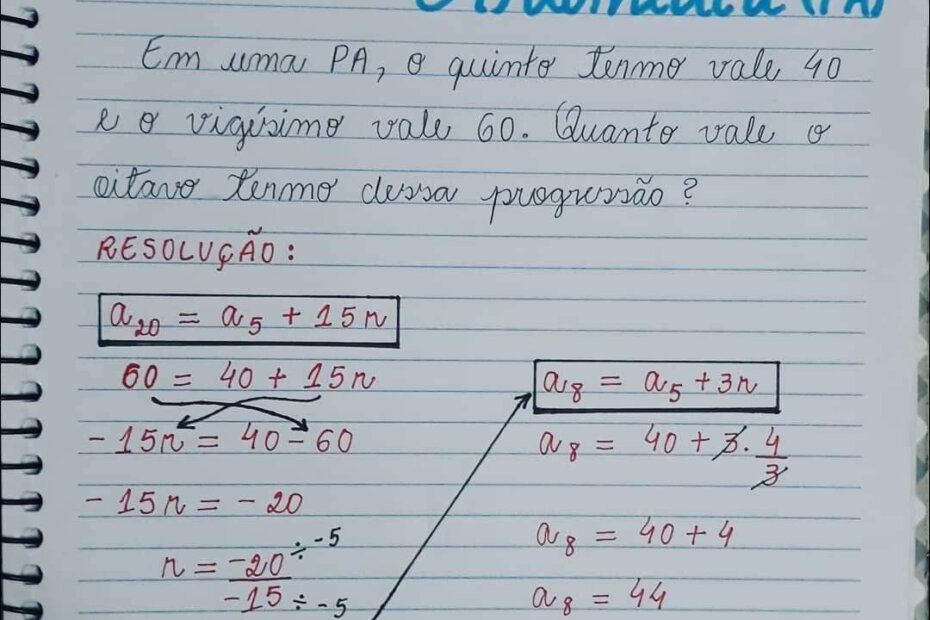 (PA)
Em uma PA, o quinto termo vale 40
e o vigésimo vale 60. Quanto vale o
oitavo termo dessa progressão?
RESOLUÇÃO:
a₂₀ = a₅ + 15r
60 = 40 + 15r
- 15r = 40 - 60
- 15r = - 20
r = -20 ÷ -5
-15 ÷ -5
a₈ = a₅ + 3r
a₈ = 40 + 3 . 4/3
a₈ = 40 + 4
a₈ = 44